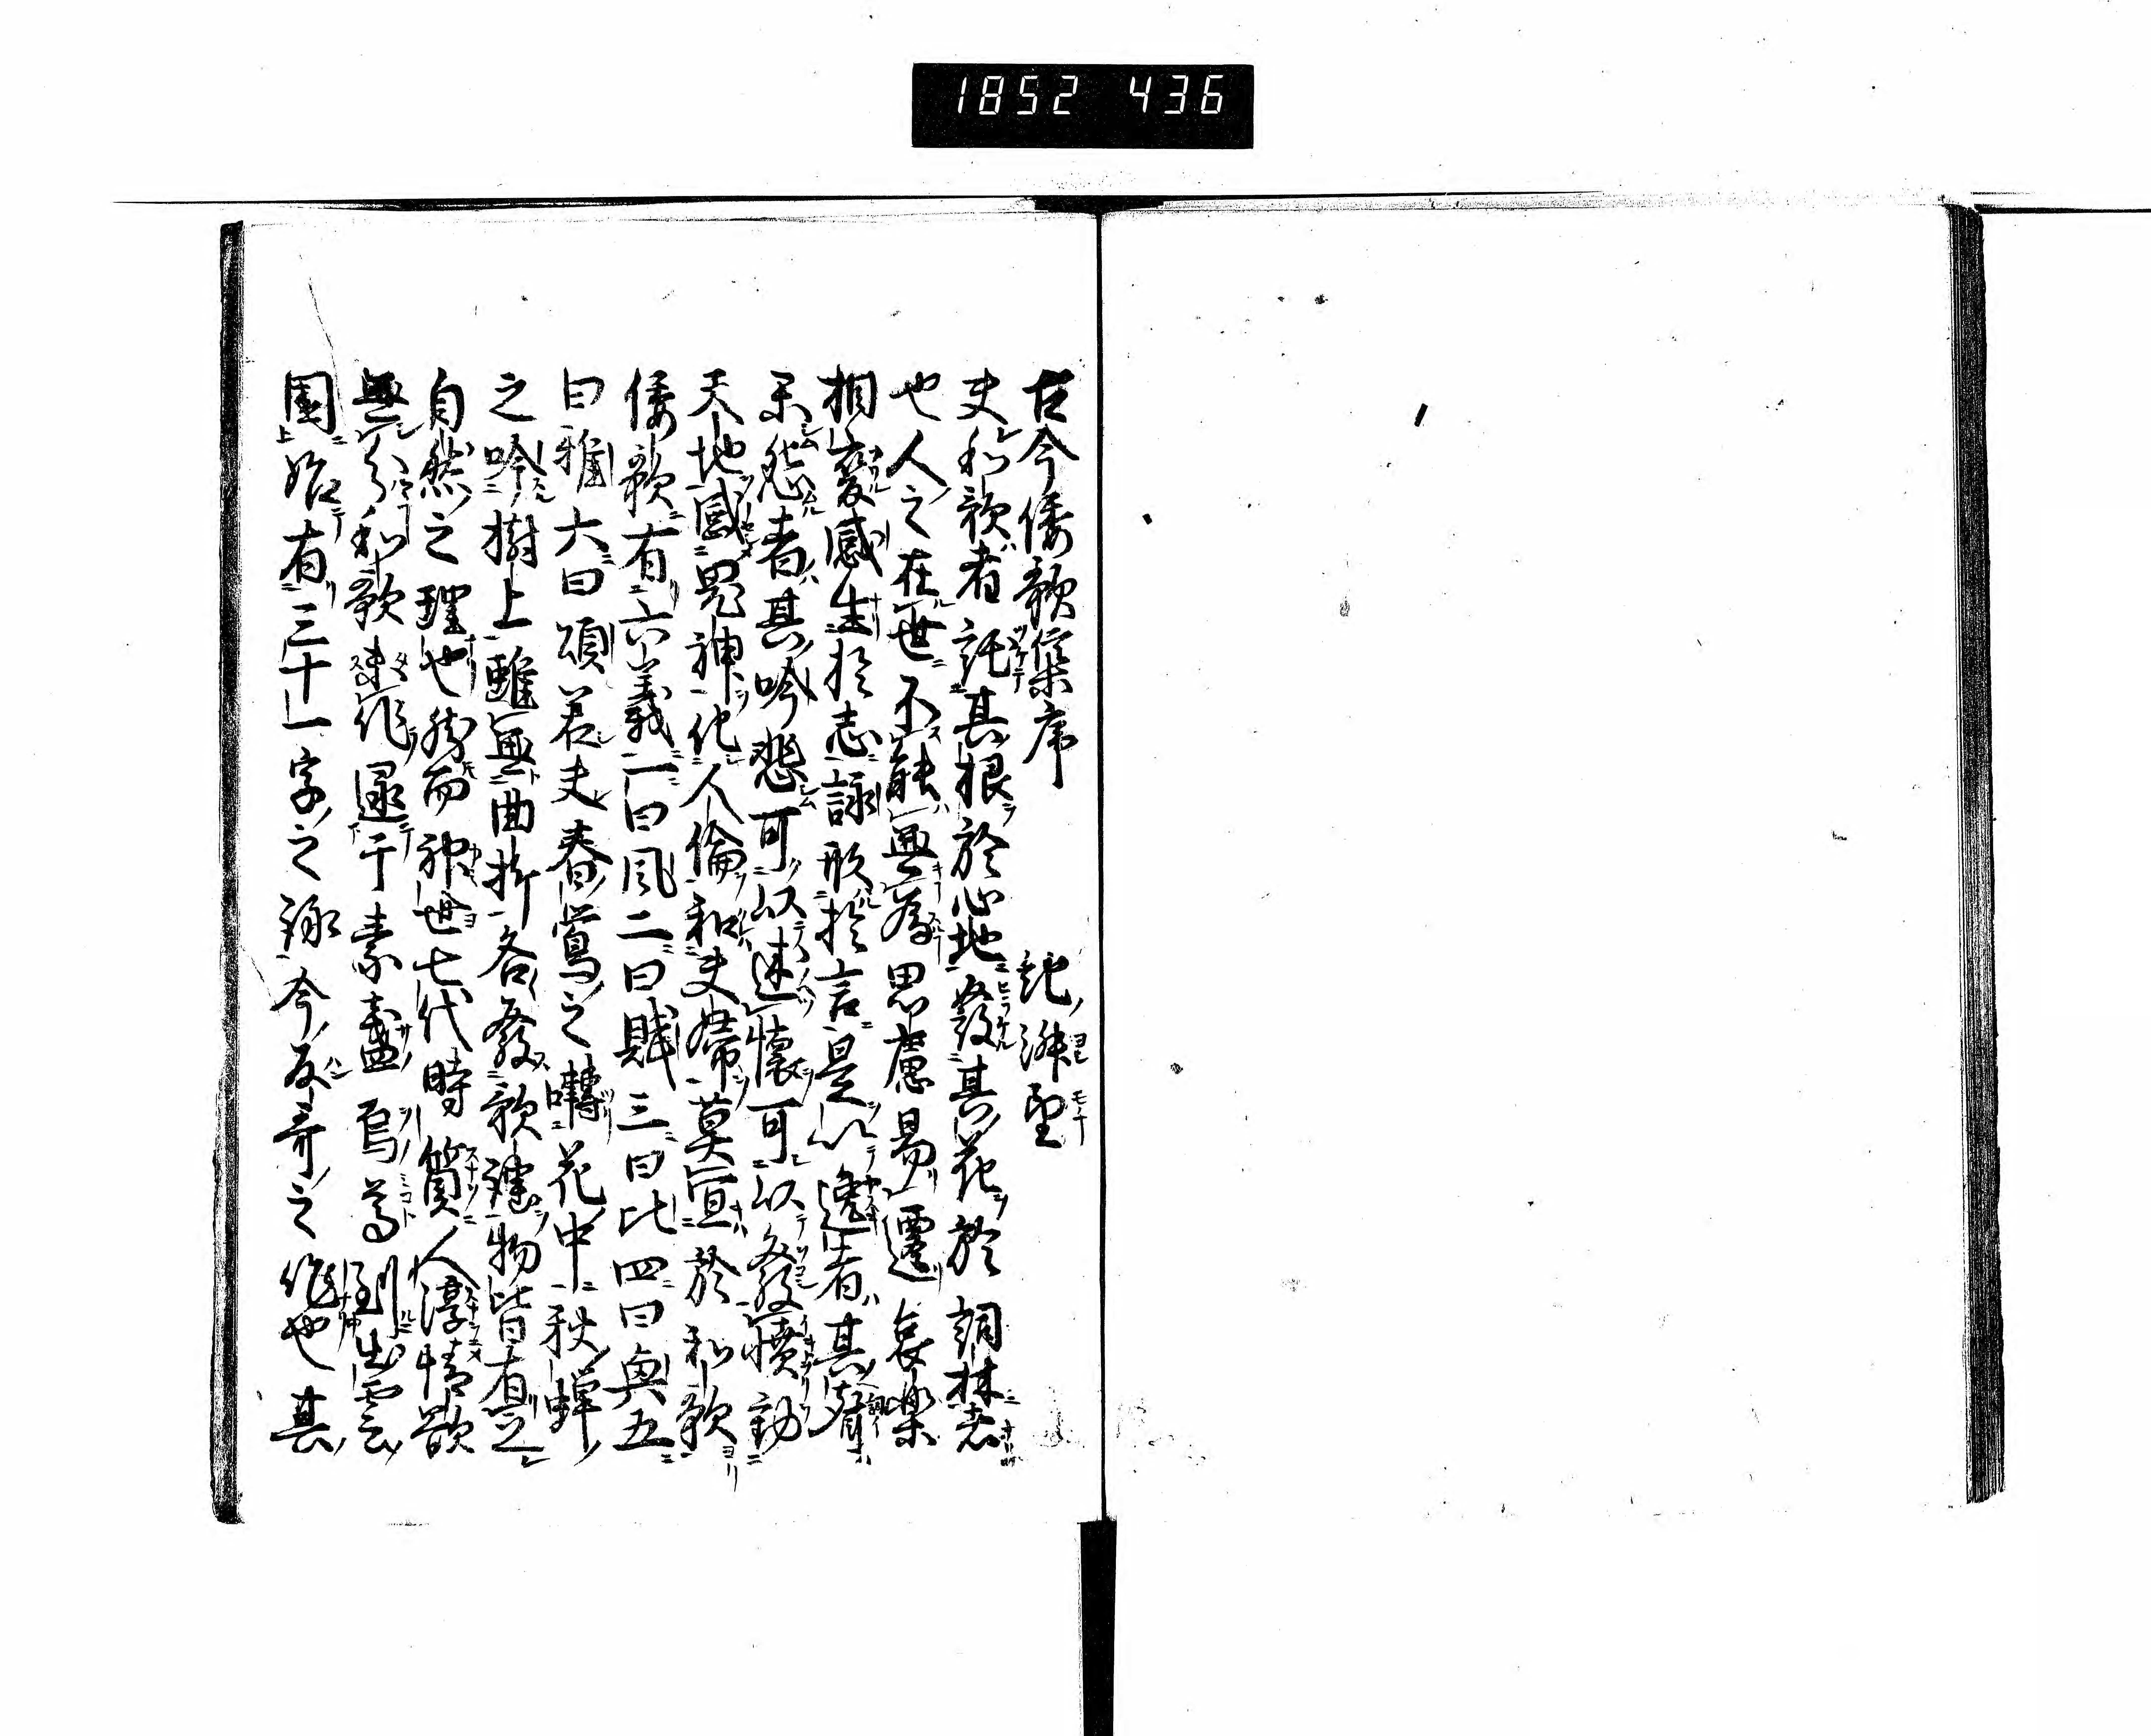 1852 436
古今倭歌集序 紀淑望
夫和歌者託其根於心地發其花於詞林者
也人之在世不能無為思慮易遷哀樂
相變感生於志詠形於言是以逸者其聲
樂怨者其吟悲可以述懷可以發憤動
天地感鬼神化人倫和夫婦莫宜於和歌
倭歌有六義一曰風二曰賦三曰比四曰興五
曰雅六曰頌若夫春鶯之囀花中秋蟬
之吟樹上雖無曲折各發歌謠物皆有之
自然之理也然而神世七代時質人淳情欲
無分和歌未作逮于素盞烏尊到出雲
國始有三十一字之詠今反哥之作也其